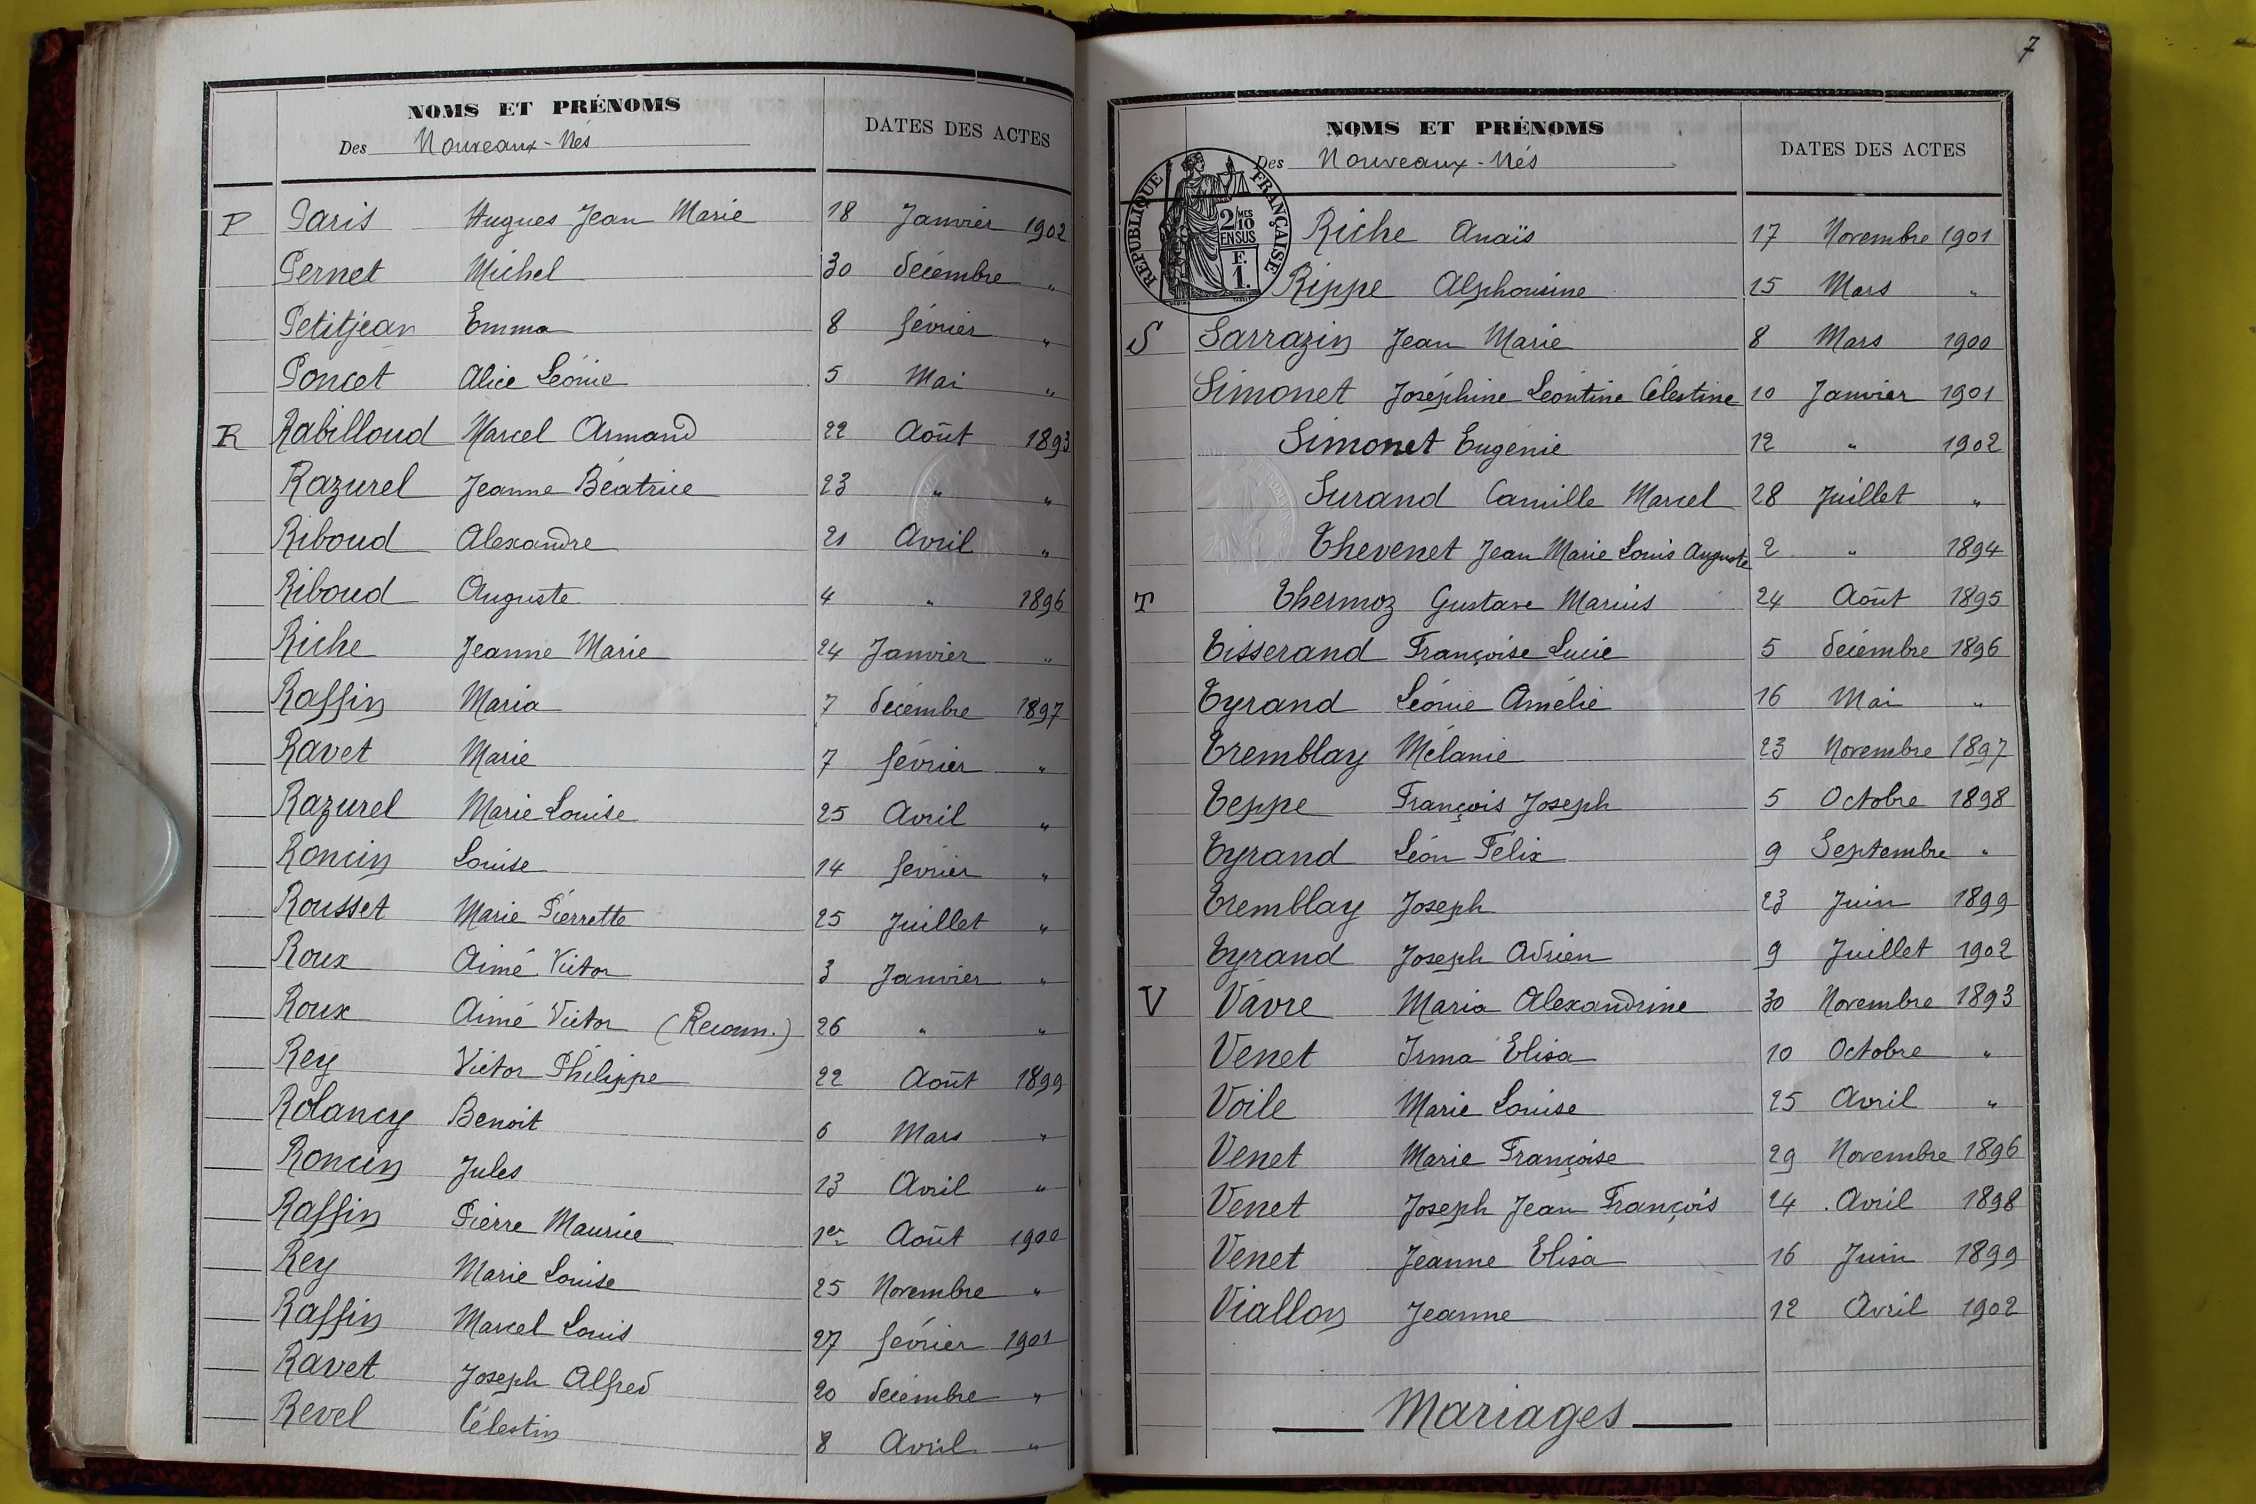 NOMS ET PRÉNOMS
Des Nouveaux-Nés
DATES DES ACTES
P Paris Hugues Jean Marie 18 Janvier 1902
Pernet Michel 30 décembre "
Petitjean Emma 8 février "
Poncet Alice Léonie 5 Mai "
R Rabilloud Marcel Armand 22 Août 1893
Razurel Jeanne Béatrice 23 " "
Riboud Alexandre 21 Avril "
Riboud Auguste 4 " 1896
Riche Jeanne Marie 24 Janvier "
Raffin Maria 7 décembre 1897
Ravet Marie 7 février "
Razurel Marie Louise 25 Avril "
Roncin Louise 14 février "
Rousset Marie Pierrette 25 Juillet "
Roux Aimé Victor 3 Janvier "
Roux Aimé Victor (Reconn.) 26 " "
Rey Victor Philippe 22 Août 1899
Rolancy Benoit 6 Mars "
Roncin Jules 13 Avril "
Raffin Pierre Maurice 1er Août 1900
Rey Marie Louise 25 Novembre "
Raffin Marcel Louis 27 février 1901
Ravet Joseph Alfred 20 décembre "
Revel Célestin 8 Avril "
7
NOMS ET PRÉNOMS
Des Nouveaux-Nés
DATES DES ACTES
RÉPUBLIQUE FRANÇAISE
2/MES 10
EN SUS
F.
1.
Riche Anaïs 17 Novembre 1901
Rippe Alphonsine 15 Mars "
S Sarrazin Jean Marie 8 Mars 1900
Simonet Joséphine Léontine Célestine 10 Janvier 1901
Simonet Eugénie 12 " 1902
Surand Camille Marcel 28 Juillet "
Thevenet Jean Marie Louis Auguste 2 " 1894
T Thermoz Gustave Marius 24 Août 1895
Tisserand Françoise Lucie 5 décembre 1896
Tyrand Léonie Amélie 16 Mai "
Tremblay Mélanie 23 Novembre 1897
Teppe François Joseph 5 Octobre 1898
Tyrand Léon Félix 9 Septembre "
Tremblay Joseph 23 Juin 1899
Tyrand Joseph Adrien 9 Juillet 1902
V Vavre Maria Alexandrine 30 Novembre 1893
Venet Irma Elisa 10 Octobre "
Voile Marie Louise 25 Avril "
Venet Marie Françoise 29 Novembre 1896
Venet Joseph Jean François 24 Avril 1898
Venet Jeanne Elisa 16 Juin 1899
Viallon Jeanne 12 Avril 1902
Mariages